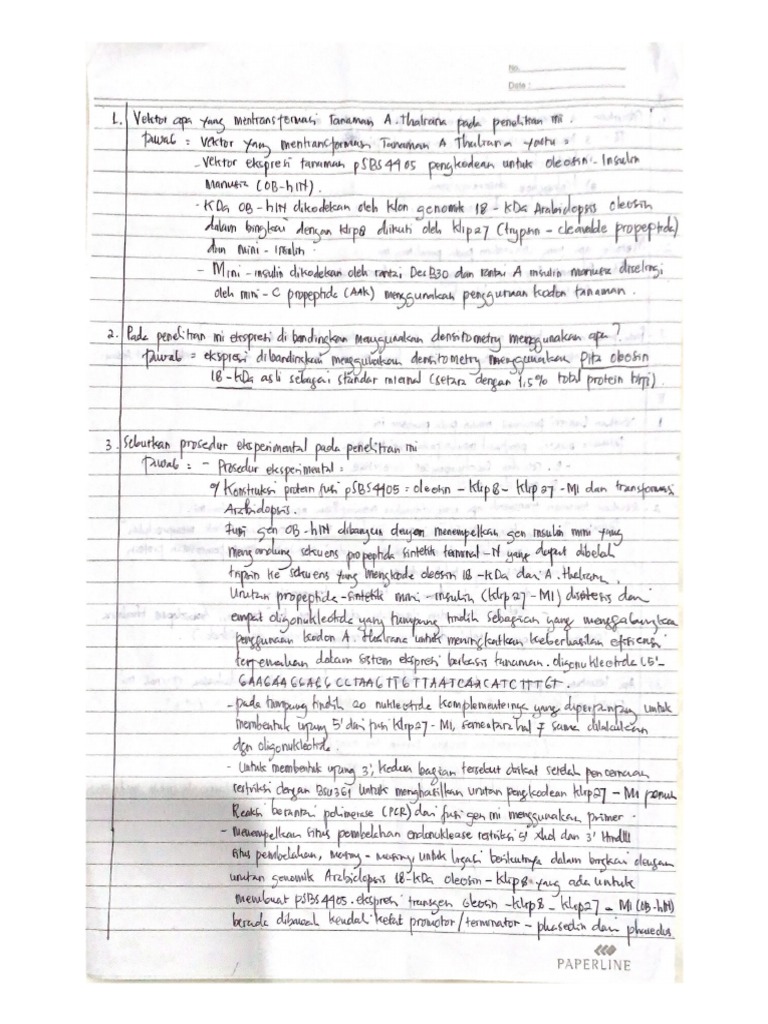 No.
Date :
1. Vektor apa yang mentransformasi Tanaman A. Thaliana pada penelitian ini.
Jawab = Vektor yang mentransformasi Tanaman A Thaliana yaitu =
- Vektor ekspresi tanaman pSBS4405 pengkodean untuk oleosin - Insulin
Manusia (OB-hIN).
- KDa OB-hIN dikodekan oleh klon genomik 18-KDa Arabidopsis oleosin
dalam bingkai dengan Klip8 diikuti oleh Klip27 (trypsin-cleavable propeptide)
dan mini-Insulin.
- Mini-insulin dikodekan oleh rantai Des B30 dan rantai A insulin manusia diselingi
oleh mini-C propeptide (AAK) menggunakan penggunaan kodon tanaman.
2. Pada penelitian ini ekspresi di bandingkan menggunakan densitometry menggunakan apa?
Jawab = ekspresi dibandingkan menggunakan densitometry menggunakan pita oleosin
18-KDa asli sebagai standar internal (setara dengan 1,5% total protein biji).
3. Seburkan prosedur eksperimental pada penelitian ini
Jawab = - Prosedur eksperimental =
Konstruksi protein fusi pSBS4405 = oleosin - Klip8 - Klip27 - MI dan transformasi
Arabidopsis.
Fusi gen OB-hIN dibangun dengan menempelkan gen insulin mini yang
mengandung sekuens propeptida sintetik terminal-N yang dapat dibelah
tripsin ke sekuens yang mengkode oleosin 18-KDa dari A. thaliana.
Urutan propeptide-sintetik mini-insulin (Klip27-MI) disintesis dari
empat oligonukleotida yang tumpang tindih sebagian yang menggabungkan
penggunaan kodon A. Thaliana untuk meningkatkan keberhasilan efisiensi
terjemahan dalam sistem ekspresi berbasis tanaman. oligonukleotida (5'-
- pada tumpang tindih 20 nukleotida komplementernya yang diperpanjang untuk
membentuk ujung 5' dari fusi Klip27-MI, sementara hal sama dilakukan
dgn oligonukleotida.
- Untuk membentuk ujung 3', kedua bagian tersebut diikat setelah pencernaan
restriksi dengan Bsu36I untuk menghasilkan urutan pengkodean Klip27-MI penuh
Reaksi berantai polimerase (PCR) dari fusi gen ini menggunakan primer.
- menempelkan situs pembelahan endonuklease restriksi 5' XhoI dan 3' HindIII
situs pembelahan, masing-masing untuk ligasi berikutnya dalam bingkai dengan
urutan genomik Arabidopsis 18-KDa oleosin-Klip8 yang ada untuk
membuat pSBS4405. ekspresi transgen oleosin-klip8-Klip27-MI (OB-hIN)
berada dibawah kendali ketat promotor/terminator-phaseolin dari phaseolus
PAPERLINE